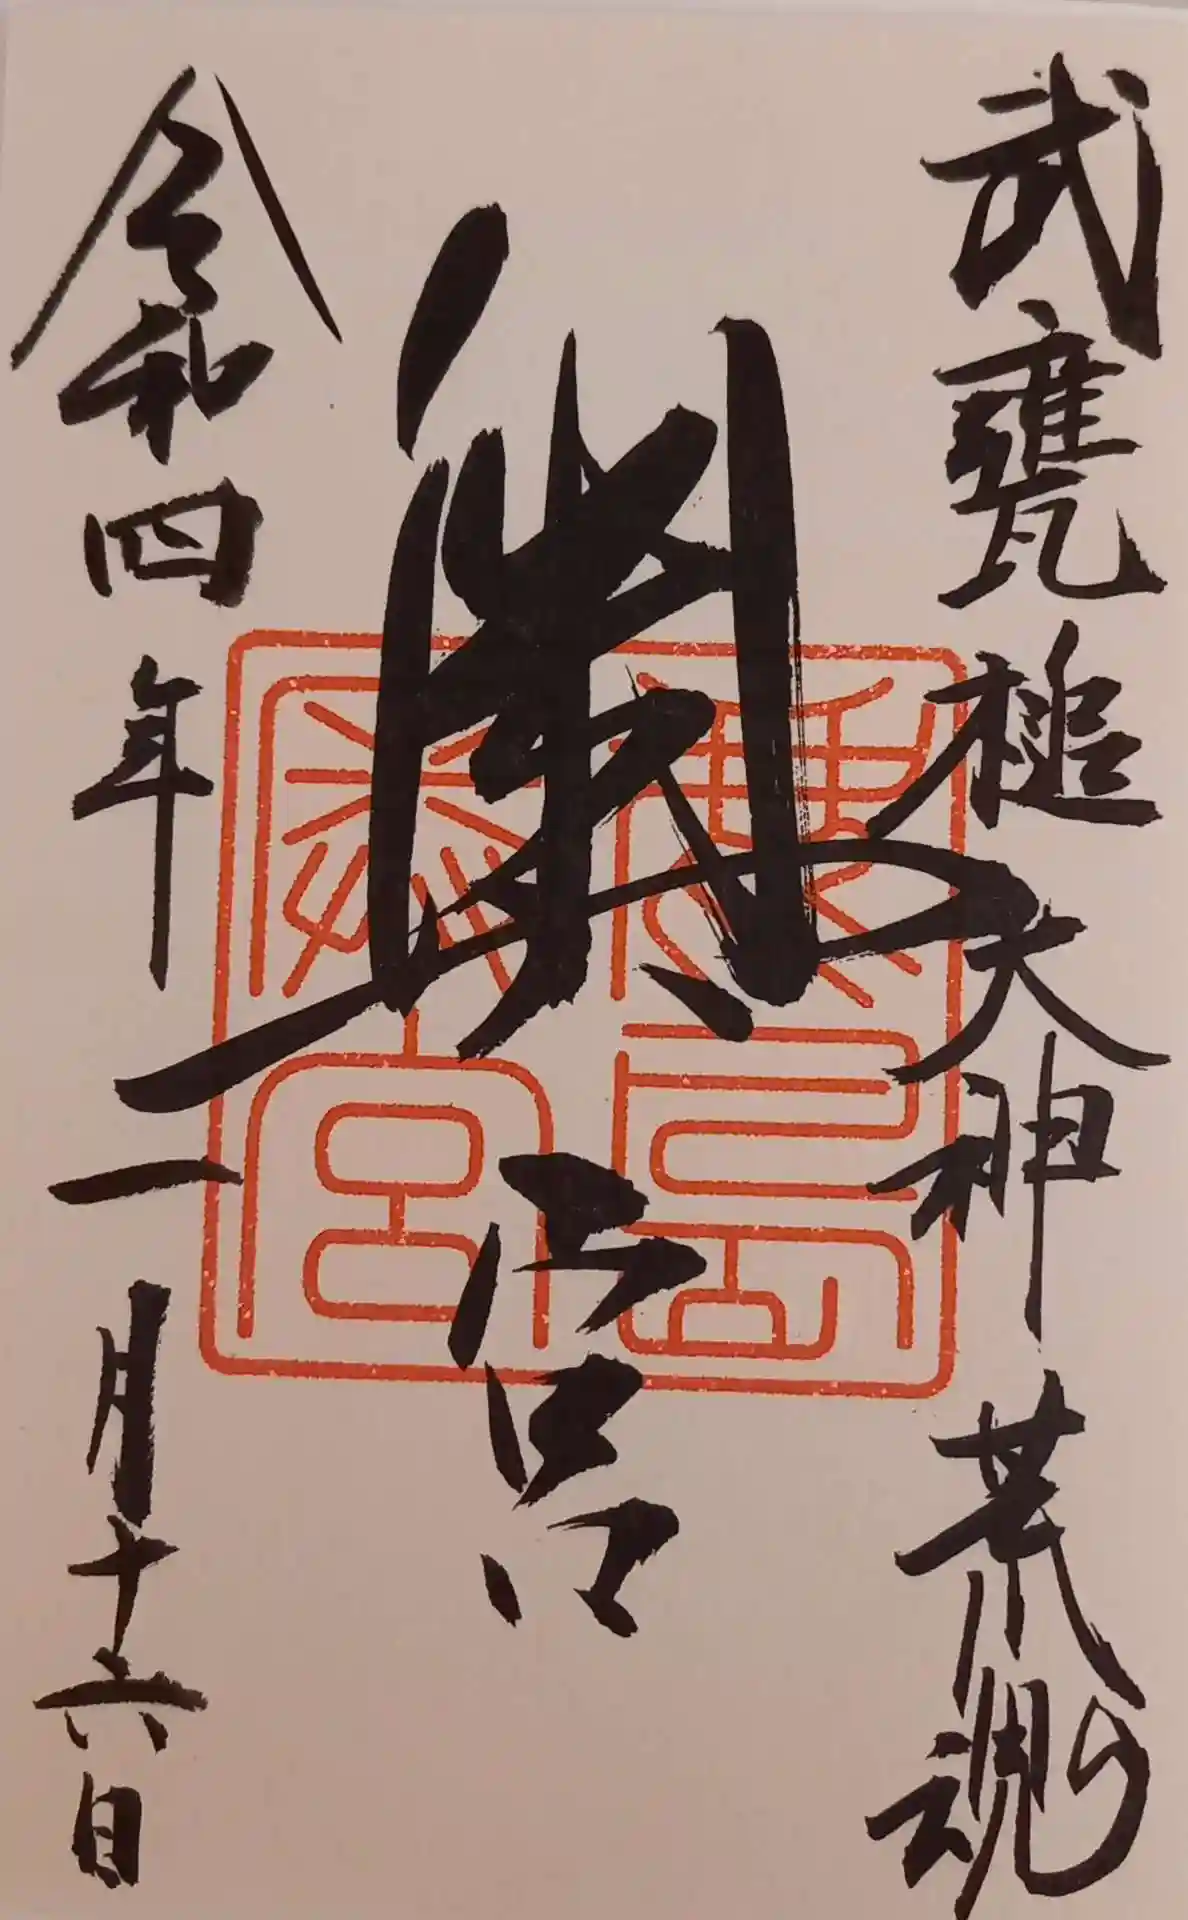 武甕槌大神 荒魂
奥宮
令和四年一月十六日
鹿島
奥宮